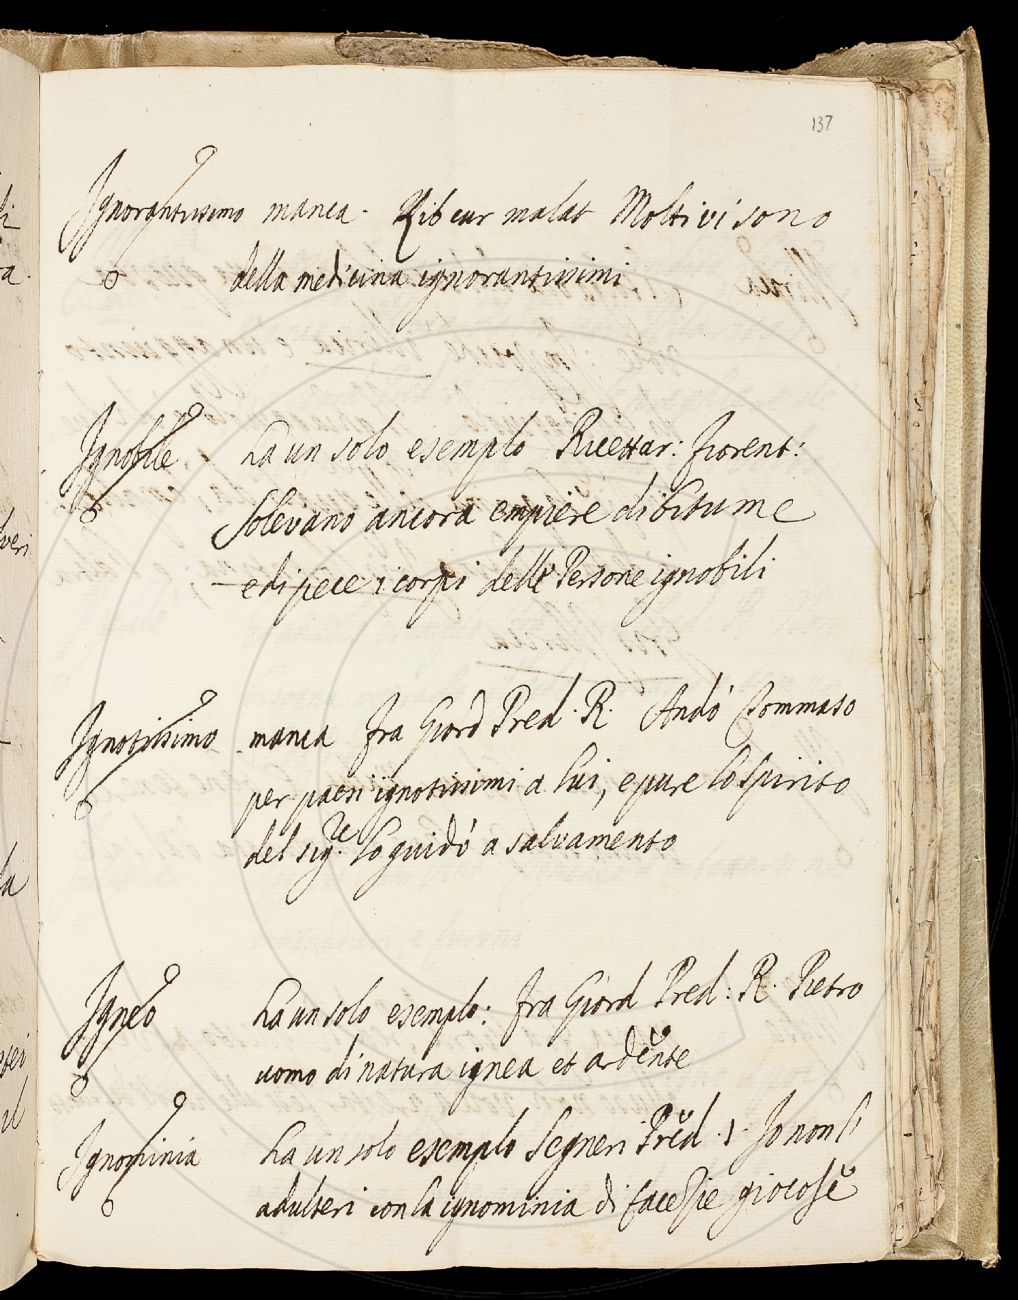 137
Ignorantissimo manca. Lib cur malat Molti vi sono
della medicina ignorantissimi
Ignobile ha un solo esempio Ricettar: fiorent:
Solevano ancora empiere di bitume
e di pece i corpi delle Persone ignobili
Ignotissimo manca Fra Giord Pred. R. Andò Tommaso
per paesi ignotissimi a lui, e pure lo spirito
del sig.re lo guidò a salvamento
Igneo ha un solo esempio: fra Giord Pred: R. Pietro
uomo di natura ignea et ardente
Ignominia ha un solo esempio Segneri Pred. 1. Io non li
adulteri con la ignominia di facezie giocose